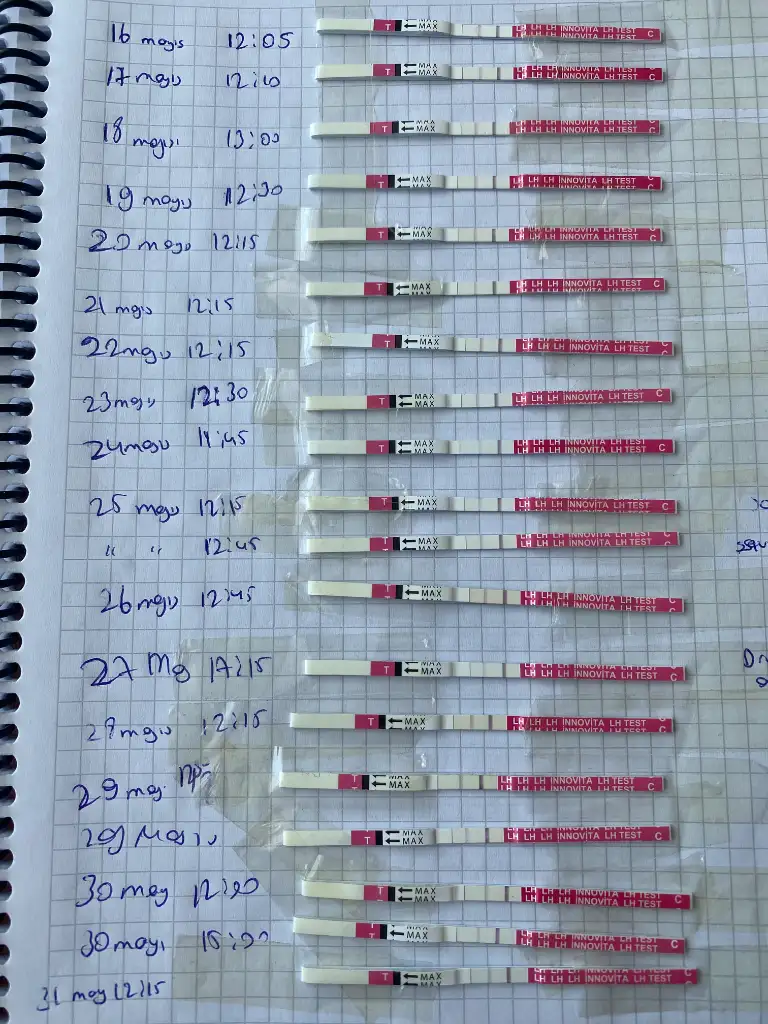 16 mayıs 12:05 T ← MAX LH LH LH INNOVITA LH TEST C
17 mayıs T ← MAX LH LH LH INNOVITA LH TEST C
18 mayıs 13:00 T ← MAX LH LH LH INNOVITA LH TEST C
19 mayıs 12:30 T ← MAX LH LH LH INNOVITA LH TEST C
20 mayıs 12:15 T ← MAX LH LH LH INNOVITA LH TEST C
21 mayıs 12:15 T ← MAX LH LH LH INNOVITA LH TEST C
22 mayıs 12:15 T ← MAX LH LH LH INNOVITA LH TEST C
23 mayıs 12:30 T ← MAX LH LH LH INNOVITA LH TEST C
24 mayıs 11:45 T ← MAX LH LH LH INNOVITA LH TEST C
25 mayıs 12:15 T ← MAX LH LH LH INNOVITA LH TEST C
" " 12:45 T ← MAX LH LH LH INNOVITA LH TEST C
26 mayıs 12:45 T ← MAX LH LH LH INNOVITA LH TEST C
27 May 17:15 T ← MAX LH LH LH INNOVITA LH TEST C
mayıs 12:15 T ← MAX LH LH LH INNOVITA LH TEST C
29 may T ← MAX LH LH LH INNOVITA LH TEST C
29 Mayıs T ← MAX LH LH LH INNOVITA LH TEST C
30 may T ← MAX LH LH LH INNOVITA LH TEST C
30 mayı T ← MAX LH LH LH INNOVITA LH TEST C
31 may 12:15 T ← MAX LH LH LH INNOVITA LH TEST C